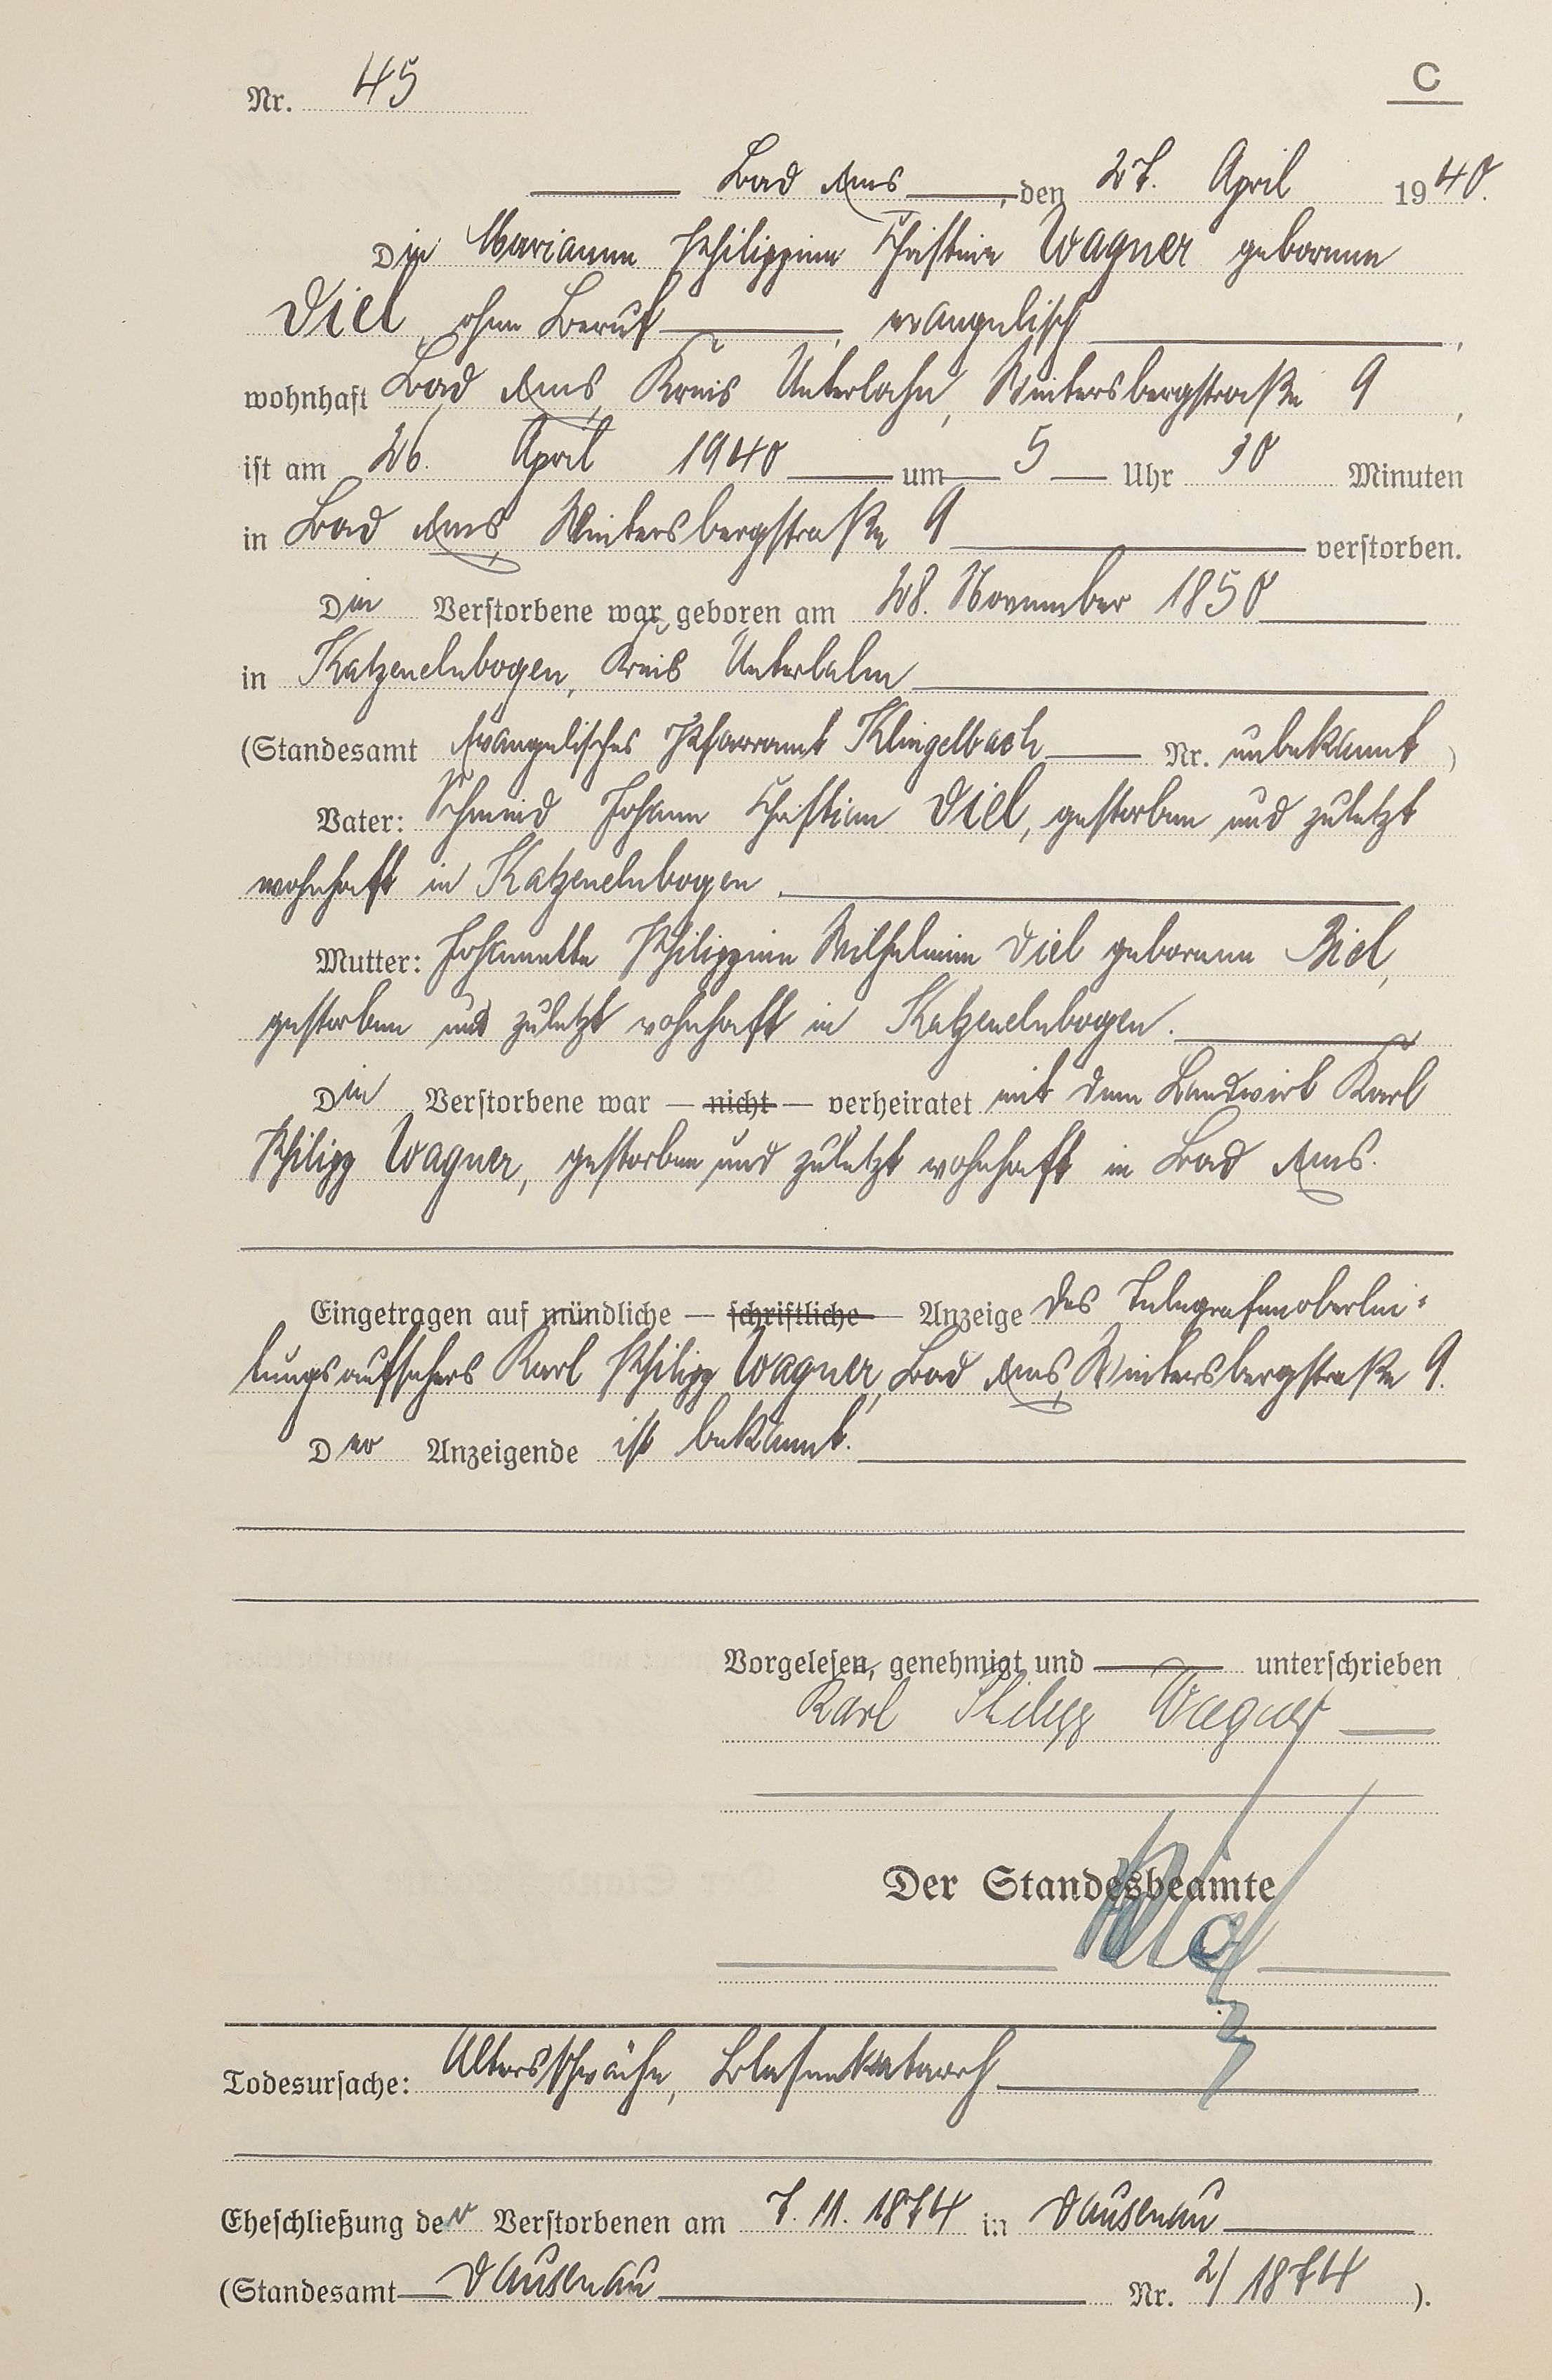 Nr. 45
C
Bad Ems, den 27. April 1940.
Die Marianne Philippine Christine Wagner geborene
Diel, ohne Beruf, evangelisch,
wohnhaft Bad Ems, Kreis Unterlahn, Wintersbergstraße 9,
ist am 26. April 1940 um 5 Uhr 30 Minuten
in Bad Ems, Wintersbergstraße 9 verstorben.
Die Verstorbene war geboren am 28. November 1850
in Katzenelnbogen, Kreis Unterlahn
(Standesamt Evangelisches Pfarramt Klingelbach Nr. unbekannt)
Vater: Schmied Johann Christian Diel, gestorben und zuletzt
wohnhaft in Katzenelnbogen.
Mutter: Johannette Philippine Wilhelmine Diel geborene Biel,
gestorben und zuletzt wohnhaft in Katzenelnbogen.
Die Verstorbene war — nicht — verheiratet mit dem Landwirt Karl
Philipp Wagner, gestorben und zuletzt wohnhaft in Bad Ems.
Eingetragen auf mündliche — schriftliche — Anzeige des Telegrafenoberlei-
tungsaufsehers Karl Philipp Wagner, Bad Ems, Wintersbergstraße 9.
Der Anzeigende ist bekannt.
Vorgelesen, genehmigt und unterschrieben
Karl Philipp Wagner
Der Standesbeamte
Todesursache: Altersschwäche, Blasenkatarrh
Eheschließung der Verstorbenen am 7. 11. 1874 in Dausenau
(Standesamt Dausenau Nr. 2/1874).